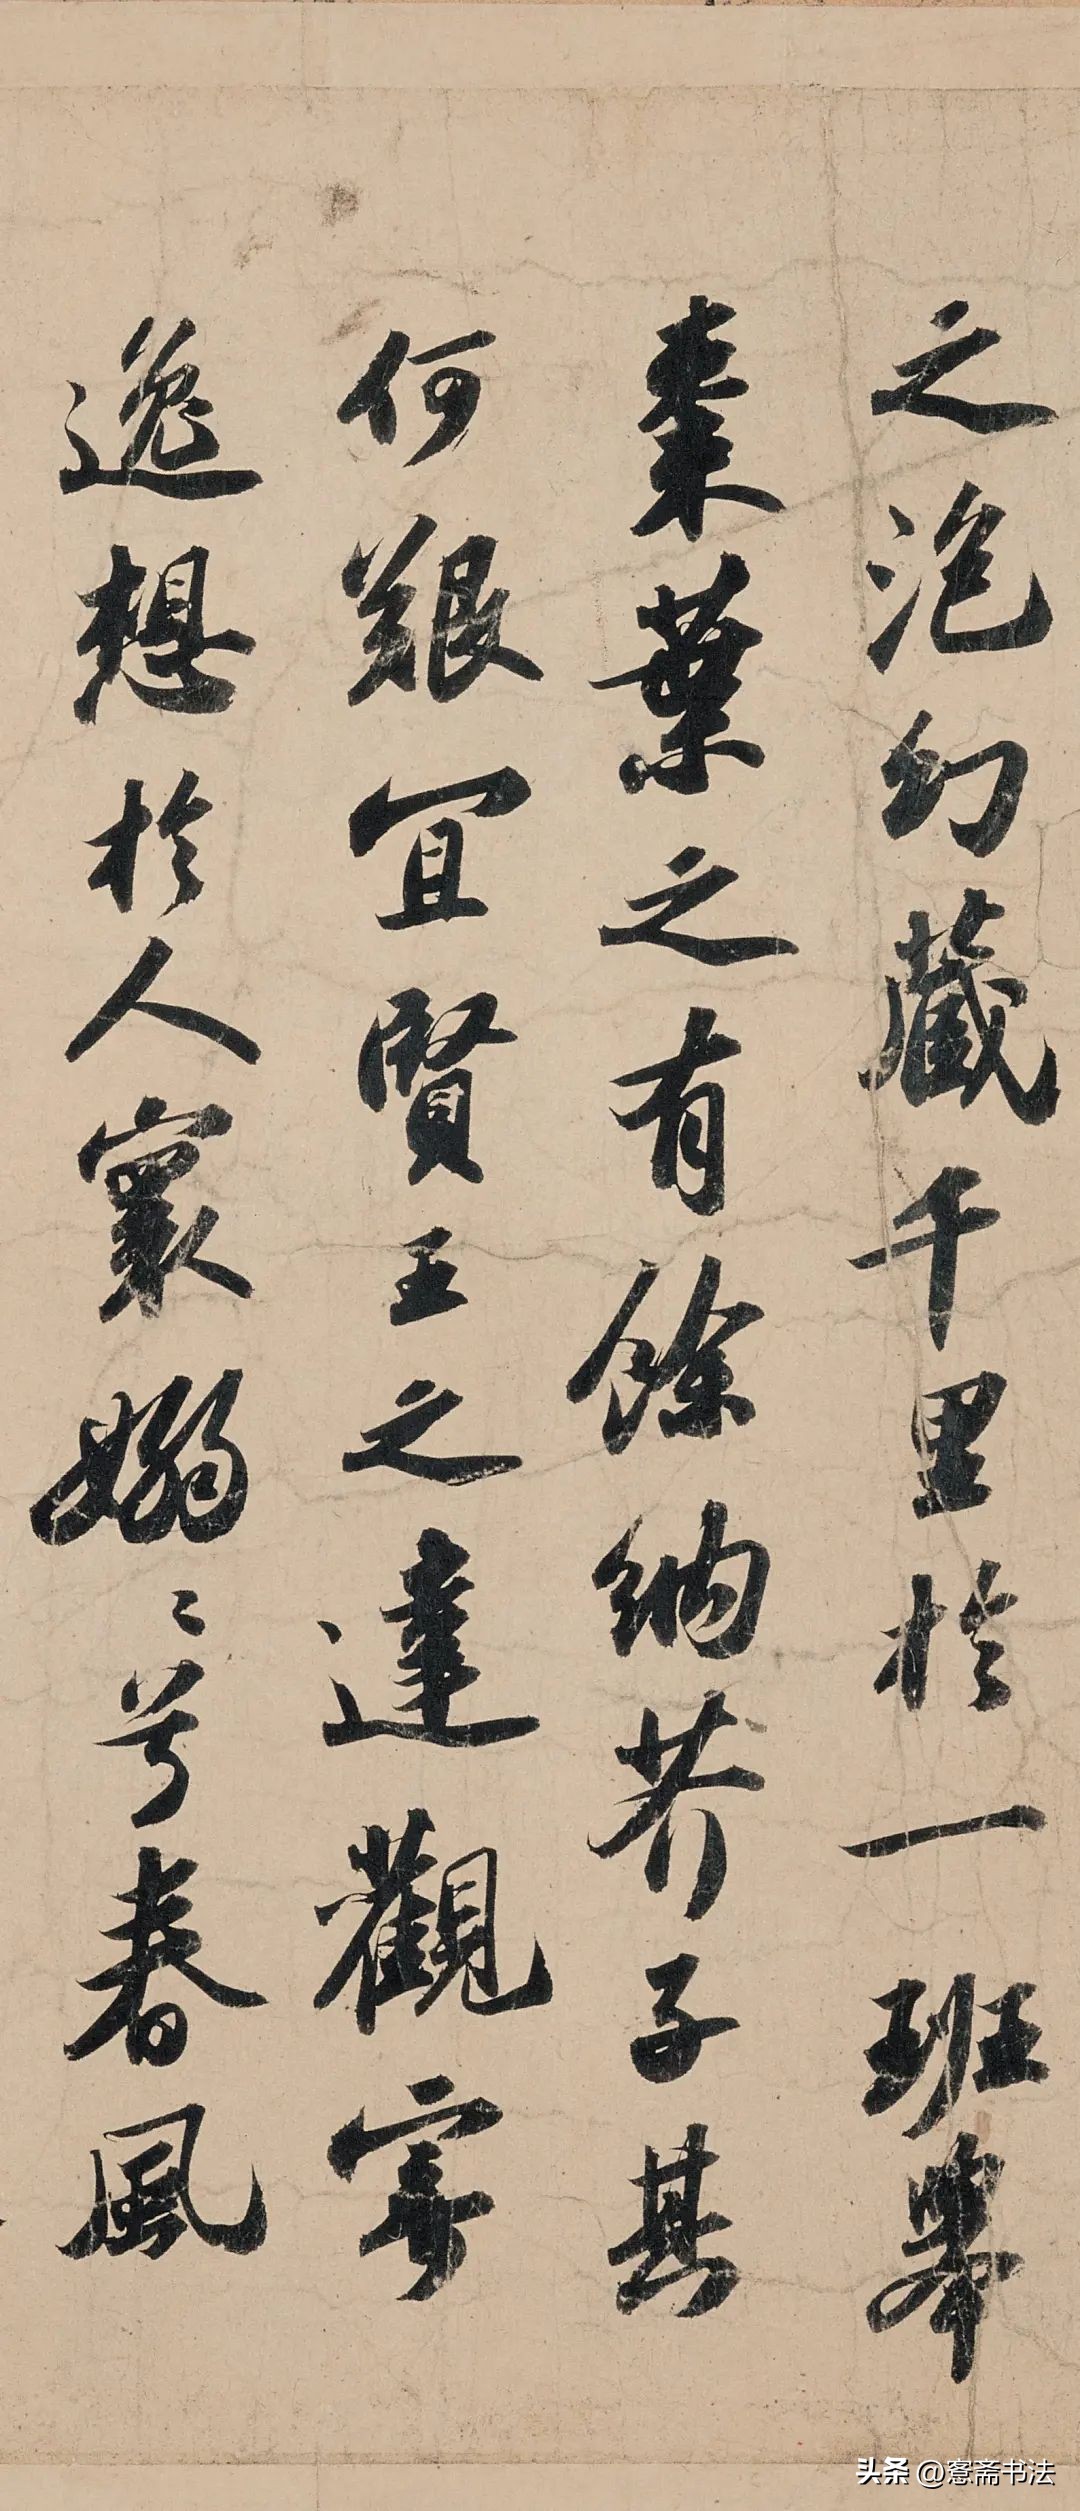 之泡幻藏千里於一班舉
棗葉之有餘納芥子其
何艱宜賢王之達觀寄
逸想於人寰嫋〻兮春風
头条 @窓斋书法